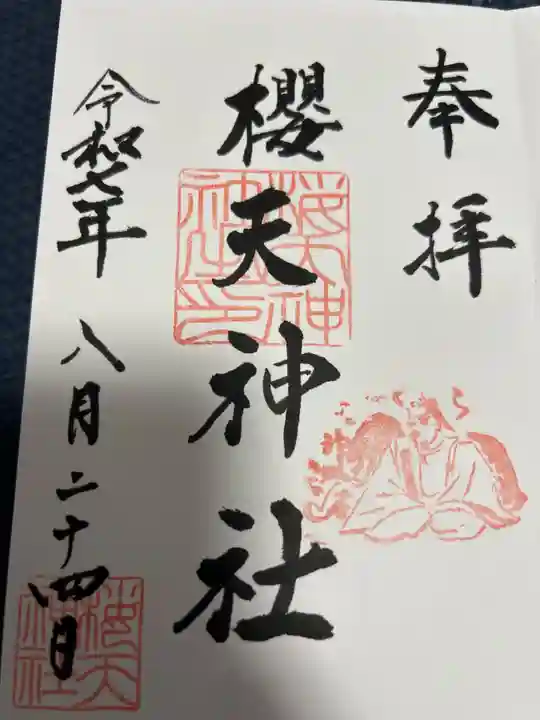 奉拝
櫻天神社
桜天神
社之印
令和七年八月二十四日
桜天
神社